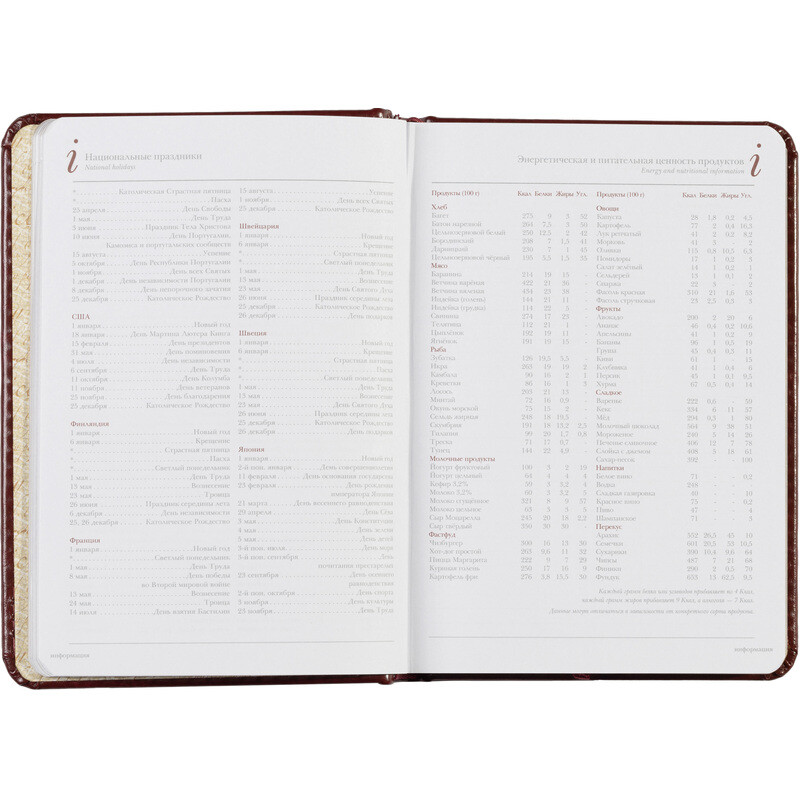 Национальные праздники
National holidays
* Католическая Страстная пятница
* Пасха
25 апреля День Свободы
1 мая День Труда
3 июня Праздник Тела Христова
10 июня День Португалии,
Камоэнса и португальских сообществ
15 августа Успение
5 октября День Республики Португалии
1 ноября День всех Святых
1 декабря День независимости Португалии
8 декабря День непорочного зачатия
25 декабря Католическое Рождество
США
1 января Новый год
День Мартина Лютера Кинга
День президентов
31 мая День поминовения
4 июля День независимости
6 сентября День Труда
11 октября День Колумба
11 ноября День ветеранов
25 ноября День благодарения
25 декабря Католическое Рождество
Финляндия
1 января Новый год
6 января Крещение
* Страстная пятница
* Пасха
* Светлый понедельник
1 мая День Труда
13 мая Вознесение
23 мая Троица
26 июня Праздник середины лета
6 декабря День независимости
25, 26 декабря Католическое Рождество
Франция
1 января Новый год
* Светлый понедельник
1 мая День Труда
8 мая День победы
во Второй мировой войне
13 мая Вознесение
24 мая Троица
14 июля День взятия Бастилии
15 августа Успение
1 ноября День всех Святых
25 декабря Католическое Рождество
Швейцария
1 января Новый год
6 января Крещение
* Страстная пятница
* Светлый понедельник
1 мая День Труда
13 мая Вознесение
23 мая День Святого Духа
26 июня Праздник середины лета
25 декабря Католическое Рождество
26 декабря День подарков
Швеция
1 января Новый год
6 января Крещение
* Страстная пятница
* Пасха
* Светлый понедельник
1 мая День Труда
13 мая Вознесение
23 мая День Святого Духа
26 июня Праздник середины лета
25 декабря Католическое Рождество
26 декабря День подарков
Япония
1 января Новый год
2-й пон. января День совершеннолетия
11 февраля День основания государства
День рождения
императора Японии
21 марта День весеннего равноденствия
29 апреля День Сёва
3 мая День Конституции
4 мая День зелени
5 мая День детей
3-й пон. июля День моря
3-й пон. сентября День
почитания престарелых
23 сентября День осеннего
равноденствия
2-й пон. октября День спорта
3 ноября День культуры
23 ноября День Труда
информация
Энергетическая и питательная ценность продуктов
Energy and nutritional information
Продукты (100 г) Ккал Белки Жиры Угл.
Хлеб
Багет 275 9 3 52
Батон нарезной 264 7,5 3 50
Цельнозерновой белый 256 12,5 2 42
Бородинский 208 7 1,5 41
Дарницкий 220 7 1 45
Цельнозерновой чёрный 195 5,5 1,5 35
Мясо
Баранина 214 19 15 -
Ветчина варёная 422 21 36 -
Ветчина копчёная 434 23 38 -
Индейка (голень) 144 21 11 -
Индейка (грудка) 114 22 5 -
Свинина 274 17 23 -
Телятина 112 21 1 -
Цыплёнок 192 19 11 -
Ягнёнок 191 19 15 -
Рыба
Зубатка 126 19,5 5,5 -
Икра 263 19 19 2
Камбала 90 16 2 1
Креветки 86 16 1 3
Лосось 203 21 13 -
Минтай 72 16 0,9 -
Окунь морской 75 15 2 -
Сельдь жирная 248 18 19,5 -
Скумбрия 191 18 13,2 2,5
Тилапия 90 20 1,7 0,8
Треска 71 17 0,7 -
Тунец 144 22 4,9 -
Молочные продукты
Йогурт фруктовый 100 3 2 19
Йогурт цельный 64 4 4 4
Кефир 3,2%
Молоко 3,2%
Молоко сгущённое 321 8 9 57
Молоко цельное 63 3 3 5
Сыр Моцарелла 245 20 18 2,2
Сыр твёрдый 350 30 30 -
Фастфуд
Чизбургер 300 16 13 30
Хот-дог простой 263 9,6 11 32
Пицца Маргарита 222 9 7 29
Куриная голень 250 17 16 9
Картофель фри 276 3,8 15,5 30
Продукты (100 г) Ккал Белки Жиры Угл.
Овощи
Капуста 28 1,8 0,2 4,5
Картофель 77 2 0,4 16,3
Лук репчатый 41 2 0,2 8,2
Морковь 41 3 - 2
Оливки 115 0,8 10,5 6,3
Помидоры 17 1 0,2 3
Салат зелёный 14 1 0,2 1
Сельдерей 13 1 0,1 2
Спаржа 22 3 - 2
Фасоль красная 310 21 1,6 53
Фасоль стручковая 23 2,5 0,3 3
Фрукты
Авокадо 200 2 20 6
Ананас 46 0,4 0,2 10,6
Апельсины 41 1 0,2 9
Бананы 96 1 0,5 19
Груши 45 0,4 0,3 11
Киви 61 1 - 15
Клубника 41 1 0,4 6
Персик 45 1 0,1 9,5
Хурма 67 0,5 0,4 14
Сладкое
Варенье 222 0,6 - 59
Кекс 334 6 11 57
Мёд 324 0,3 1 80
Молочный шоколад 564 9 36 51
Мороженое 240 5 14 26
Печенье сливочное 408 12 7 78
Слойка с джемом
Сахар-песок 392 - - 100
Напитки
Белое вино 71 - - 0,2
Водка 248 - - -
Сладкая газировка 40 - - 10
Красное вино 71 - - 0,2
Пиво 47 - - 4
Шампанское 71 - - 3
Перекус
Арахис 552 26,3 45 10
Семечки 604 20,5 53 10,5
Сухарики 398 10,4 9,6 64
Чипсы 487 7 21 68
Финики 290 2 0,5 70
Фундук 653 13 62,5 9,5
Каждый грамм белка или углеводов прибавляет по 4 Ккал,
каждый грамм жиров прибавляет 9 Ккал, а алкоголь — 7 Ккал.
Данные могут отличаться в зависимости от конкретного сорта продукта
информация